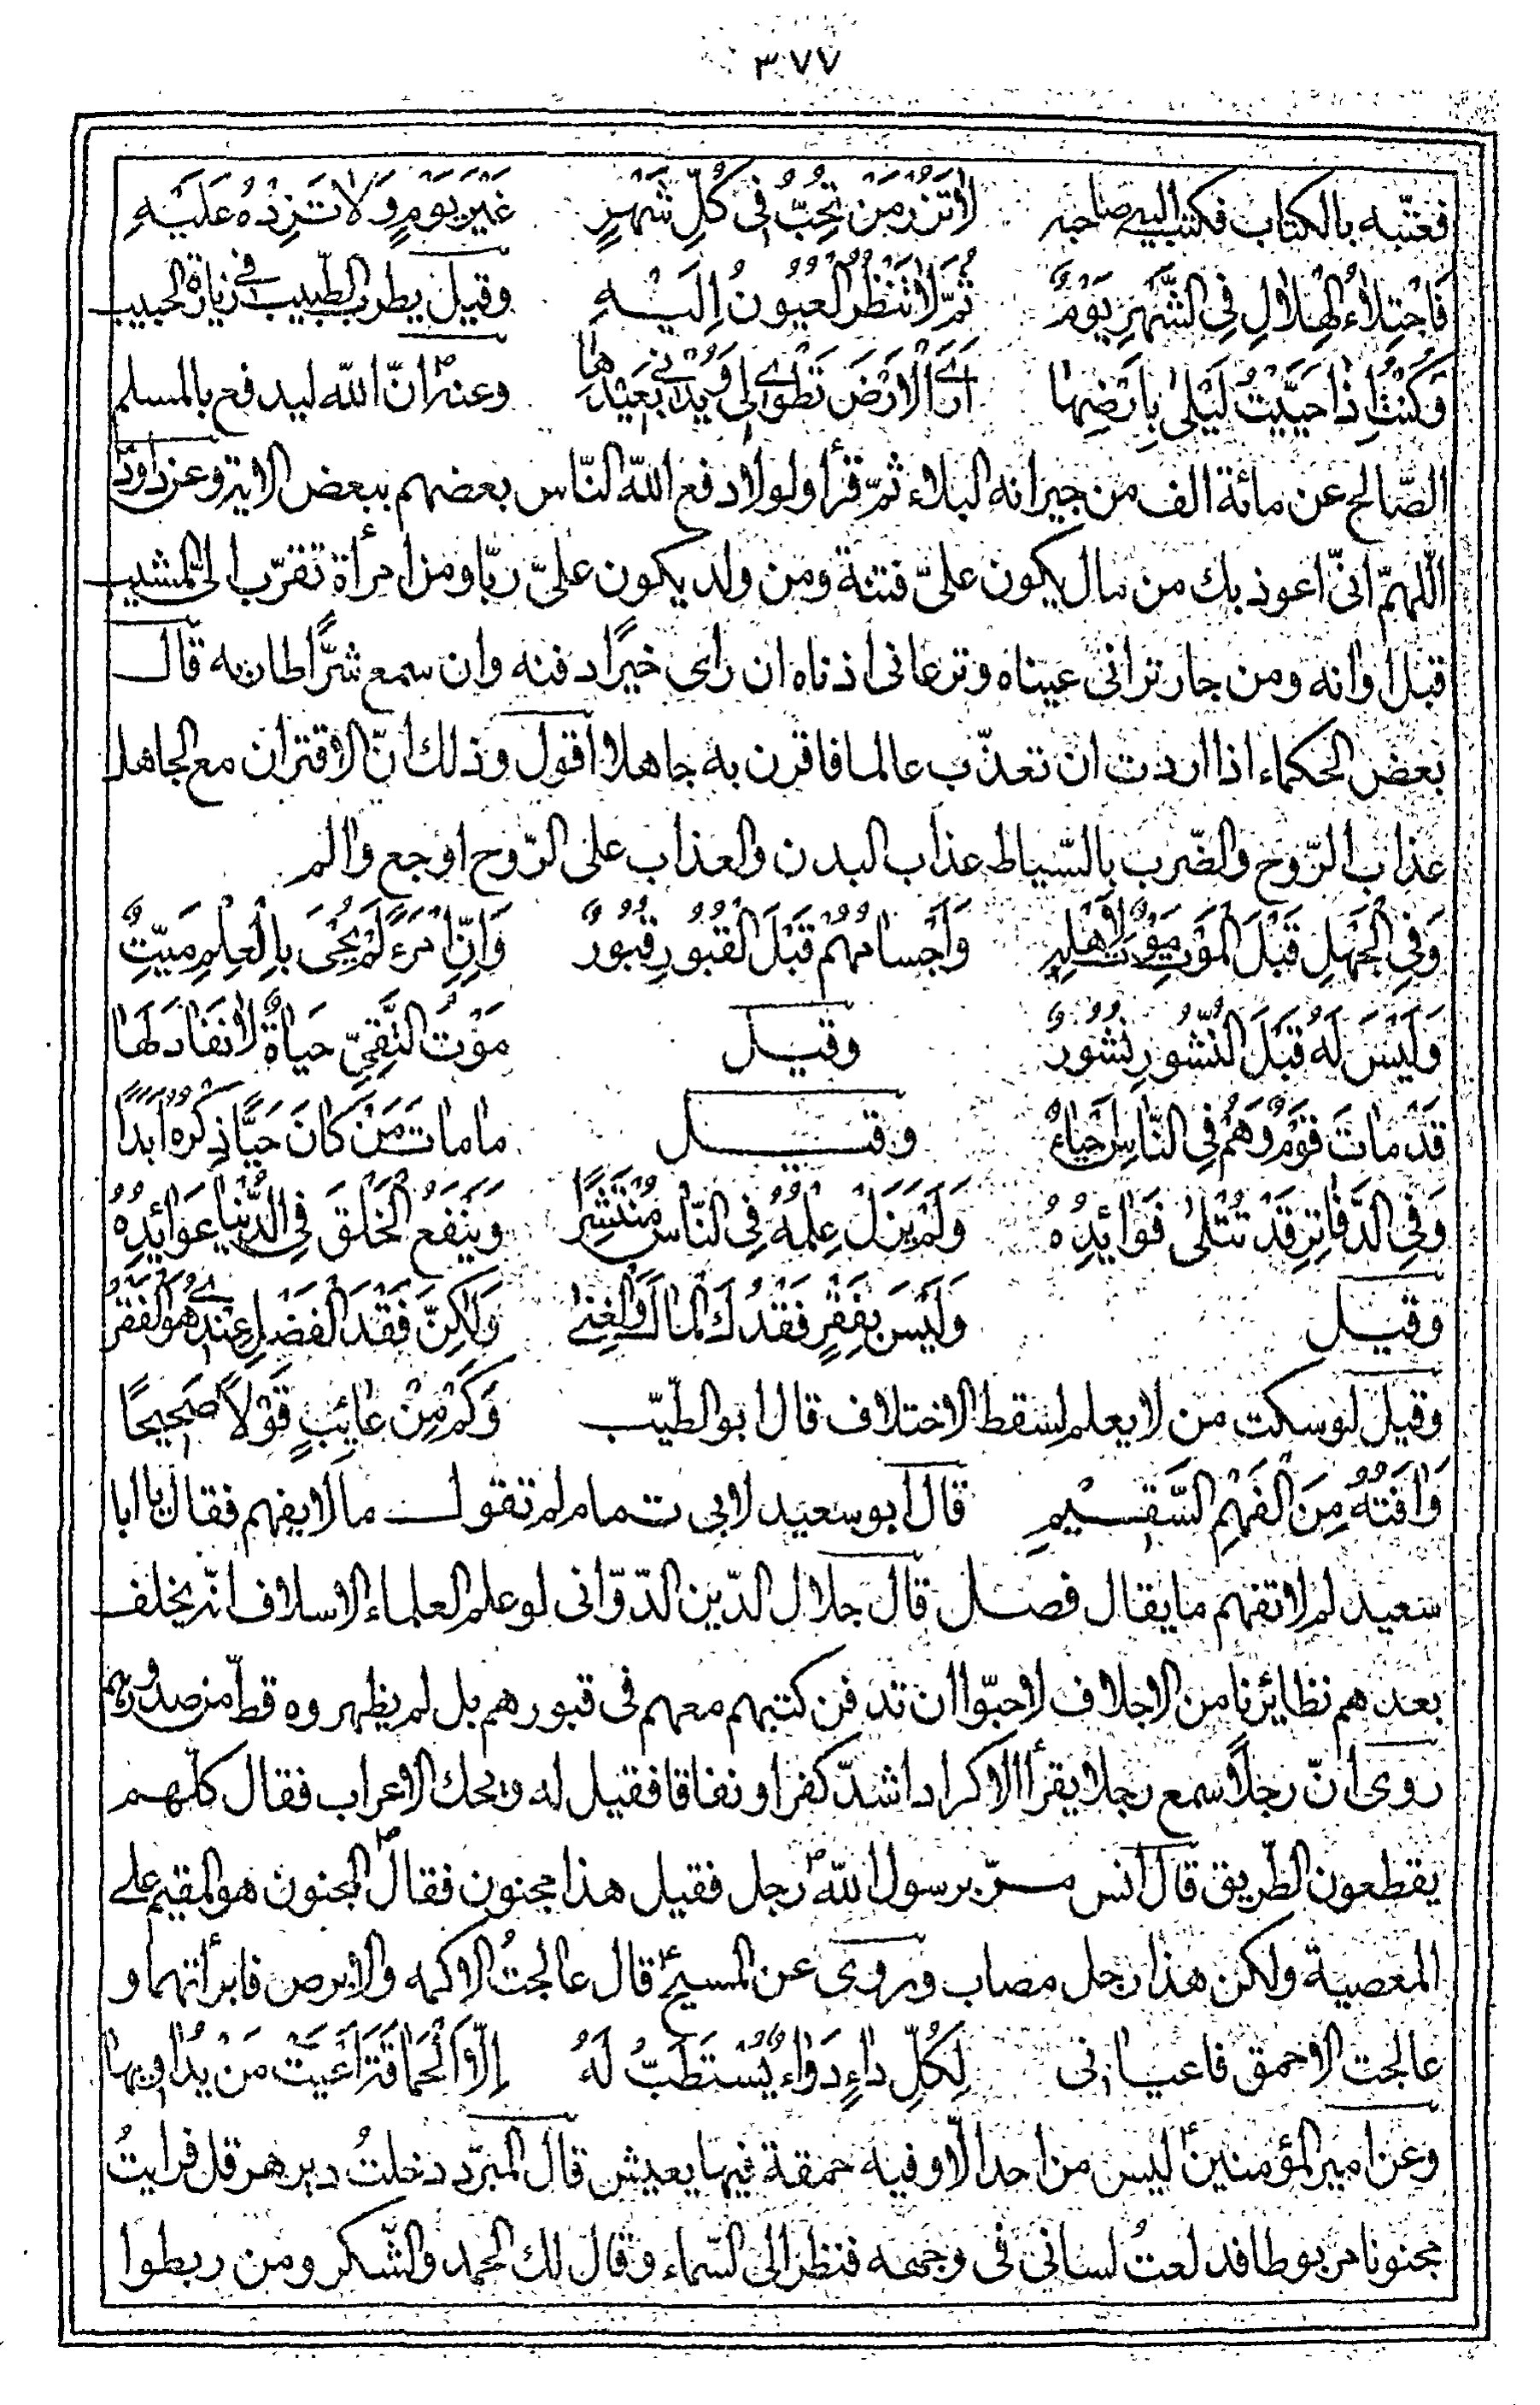 ٣٧٧
فعتّبه بالكتاب فكتب اليه صاحبه لَا تَزُرْ مَنْ تُحِبُّ فِي كُلِّ شَهْرٍ غَيْرَ يَوْمٍ وَلَا تَزِدْهُ عَلَيْهِ
فَاجْتِلَاءُ الْهِلَالِ فِي الشَّهْرِ يَوْمٌ ثُمَّ لَا تَنْظُرُ الْعُيُونُ اِلَيْهِ وقيل يطرب الطبيب فى زيارة الحبيب
وَكُنْتُ اِذَا حَيَّيْتُ لَيْلَى بِاَرْضِهَا اَرَى الْاَرْضَ تَطْوِى لِى وَيُدْنِى بَعِيْدُهَا وعنه ص انّ اللّه ليدفع بالمسلم
الصّالح عن مائة الف من جيرانه البلاء ثمّ قرأ ولولا دفع اللّه النّاس بعضهم ببعض الاية وعن داود
اللّهمّ انّى اعوذ بك من مال يكون علىّ فتنة ومن ولد يكون علىّ ربّا ومن امرأة تقرّب الىّ المشيب
قبل اوانه ومن جار ترانى عيناه وترعانى اذناه ان راى خيرًا دفنه وان سمع شرًّا طار به قال
بعض الحكماء اذا اردت ان تعذّب عالما فاقرن به جاهلا اقول وذلك انّ الاقتران مع الجاهل
عذاب الرّوح والضّرب بالسّياط عذاب البدن والعذاب على الرّوح اوجع والم
وَفِي الْجَهْلِ قَبْلَ الْمَوْتِ مَوْتٌ لِاَهْلِهِ وَاَجْسَامُهُمْ قَبْلَ الْقُبُورِ قُبُورٌ وَاِنِّ امْرَءً لَمْ يَحْيَ بِالْعِلْمِ مَيِّتٌ
وَلَيْسَ لَهُ قَبْلَ النُّشُورِ نُشُورٌ وقيل مَوْتُ التَّقِيِّ حَيَاةٌ لَا نَفَادَ لَهَا
قَدْ مَاتَ قَوْمٌ وَهُمْ فِي النَّاسِ اَحْيَاءٌ وقيل ما مات مَنْ كَانَ حَيًّا ذِكْرُهُ اَبَدًا
وَفِي الدَّفَاتِرِ قَدْ تُتْلَى فَوَائِدُهُ وَلَمْ يَزَلْ عِلْمُهُ فِي النَّاسِ مُنْتَشِرًا وَيَنْفَعُ الْخَلْقَ فِي الدُّنْيَا عَوَائِدُهُ
وقيل وَلَيْسَ بِفَقْرٍ فَقْدُكَ الْمَالَ وَالْغِنَى وَلَكِنَّ فَقْدَ الْفَضْلِ عِنْدِي هُوَ الْفَقْرُ
وقيل لو سكت من لا يعلم لسقط الاختلاف قال ابو الطيّب وَكَمْ مِنْ عَائِبٍ قَوْلاً صَحِيحًا
وَآفَتُهُ مِنَ الْفَهْمِ السَّقِيمِ قال ابو سعيد لابى تمام لم تقول ما لا يفهم فقال يا ابا
سعيد لم لا تفهم ما يقال فصل قال جلال الدّين الدّوّانى لو علم العلماء الاسلاف انّه يخلف
بعدهم نظائرنا من الاجلاف لاحبّوا ان تدفن كتبهم معهم فى قبورهم بل لم يظهروه قطّ من صدورهم
روى انّ رجلاً سمع رجلا يقرأ الاكراد اشدّ كفرا ونفاقا فقيل له ويحك الاعراب فقال كلّهم
يقطعون الطّريق قال انس مرّ برسول اللّه ص رجل فقيل هذا مجنون فقال ص المجنون هو المقيم على
المعصية ولكن هذا رجل مصاب وروى عن المسيح ع قال عالجتُ الاكمه والابرص فابرأتهما و
عالجت الاحمق فاعيانى لِكُلِّ دَاءٍ دَوَاءٌ يُسْتَطَبُّ لَهُ اِلَّا الْحَمَاقَةَ اَعْيَتْ مَنْ يُدَاوِيهَا
وعن امير المؤمنين ع ليس من احد الّا وفيه حمقة فيها يعيش قال المبرّد دخلتُ دير هرقل فرايتُ
مجنونا مربوطا فدلعتُ لسانى فى وجهه فنظر الى السّماء وقال لك الحمد والشّكر ومن ربطوا